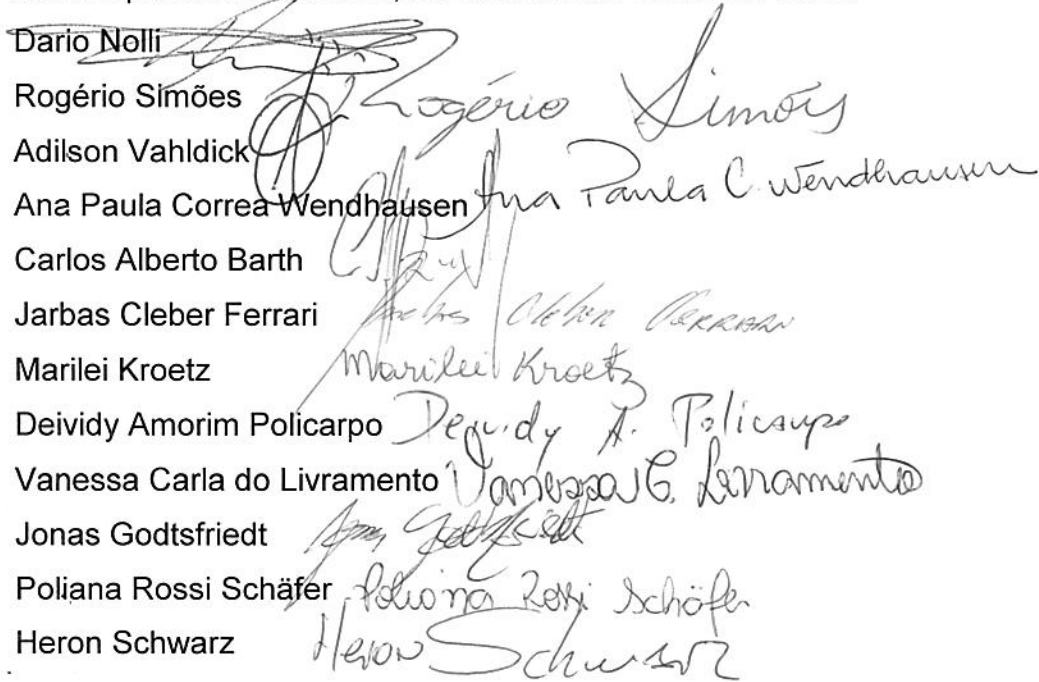 Dario Nolli
Rogério Simões Rogério Simões
Adilson Vahldick
Ana Paula Correa Wendhausen Ana Paula C. Wendhausen
Carlos Alberto Barth
Jarbas Cleber Ferrari Jarbas Cleber Ferrari
Marilei Kroetz Marilei Kroetz
Deividy Amorim Policarpo Deividy A. Policarpo
Vanessa Carla do Livramento Vanessa C. Livramento
Jonas Godtsfriedt
Poliana Rossi Schäfer Poliana Rossi Schäfer
Heron Schwarz Heron Schwarz